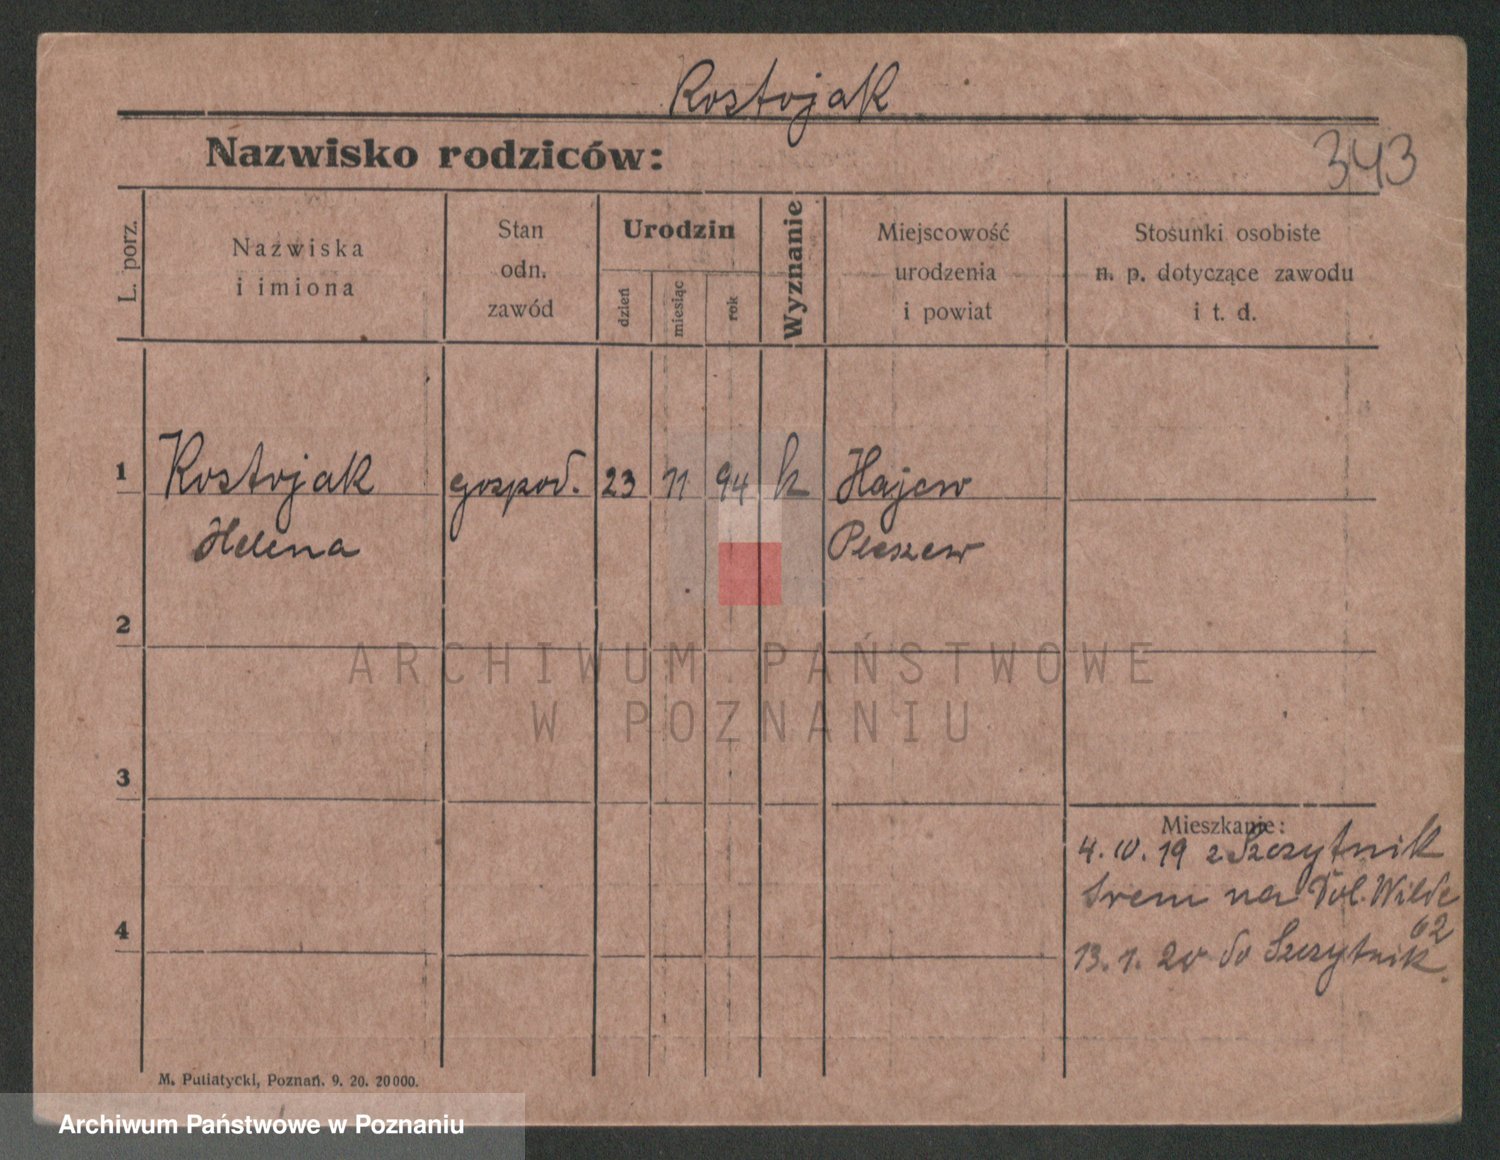 Rostojak
Nazwisko rodziców:
343
L. porz.
Nazwiska
i imiona
Stan
odn.
zawód
Urodzin
dzień
miesiąc
rok
Wyznanie
Miejscowość
urodzenia
i powiat
Stosunki osobiste
n. p. dotyczące zawodu
i t. d.
1
Rostojak
gospod.
23
11
94
k
Hajew
Helena
Pleszew
2
ARCHIWUM PAŃSTWOWE
W POZNANIU
3
Mieszkanie:
4. IV. 19 z Szczytnik
Srem na Dol. Wilde
62
4
13. 1. 20 do Szczytnik.
M. Putiatycki, Poznań. 9. 20. 20000.
Archiwum Państwowe w Poznaniu